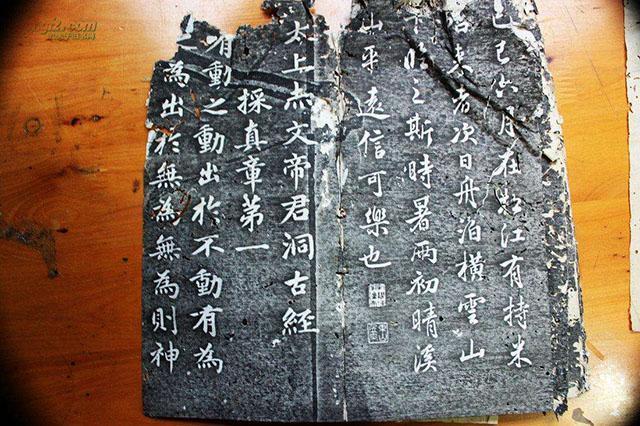 己巳六月在松江有持米
来者次日舟泊橫雲山
下臨之斯時暑雨初晴溪
山平遠信可樂也
太上赤文帝君洞古經
採真章第一
有動之動出於不動有為
之為出於無為無為則神